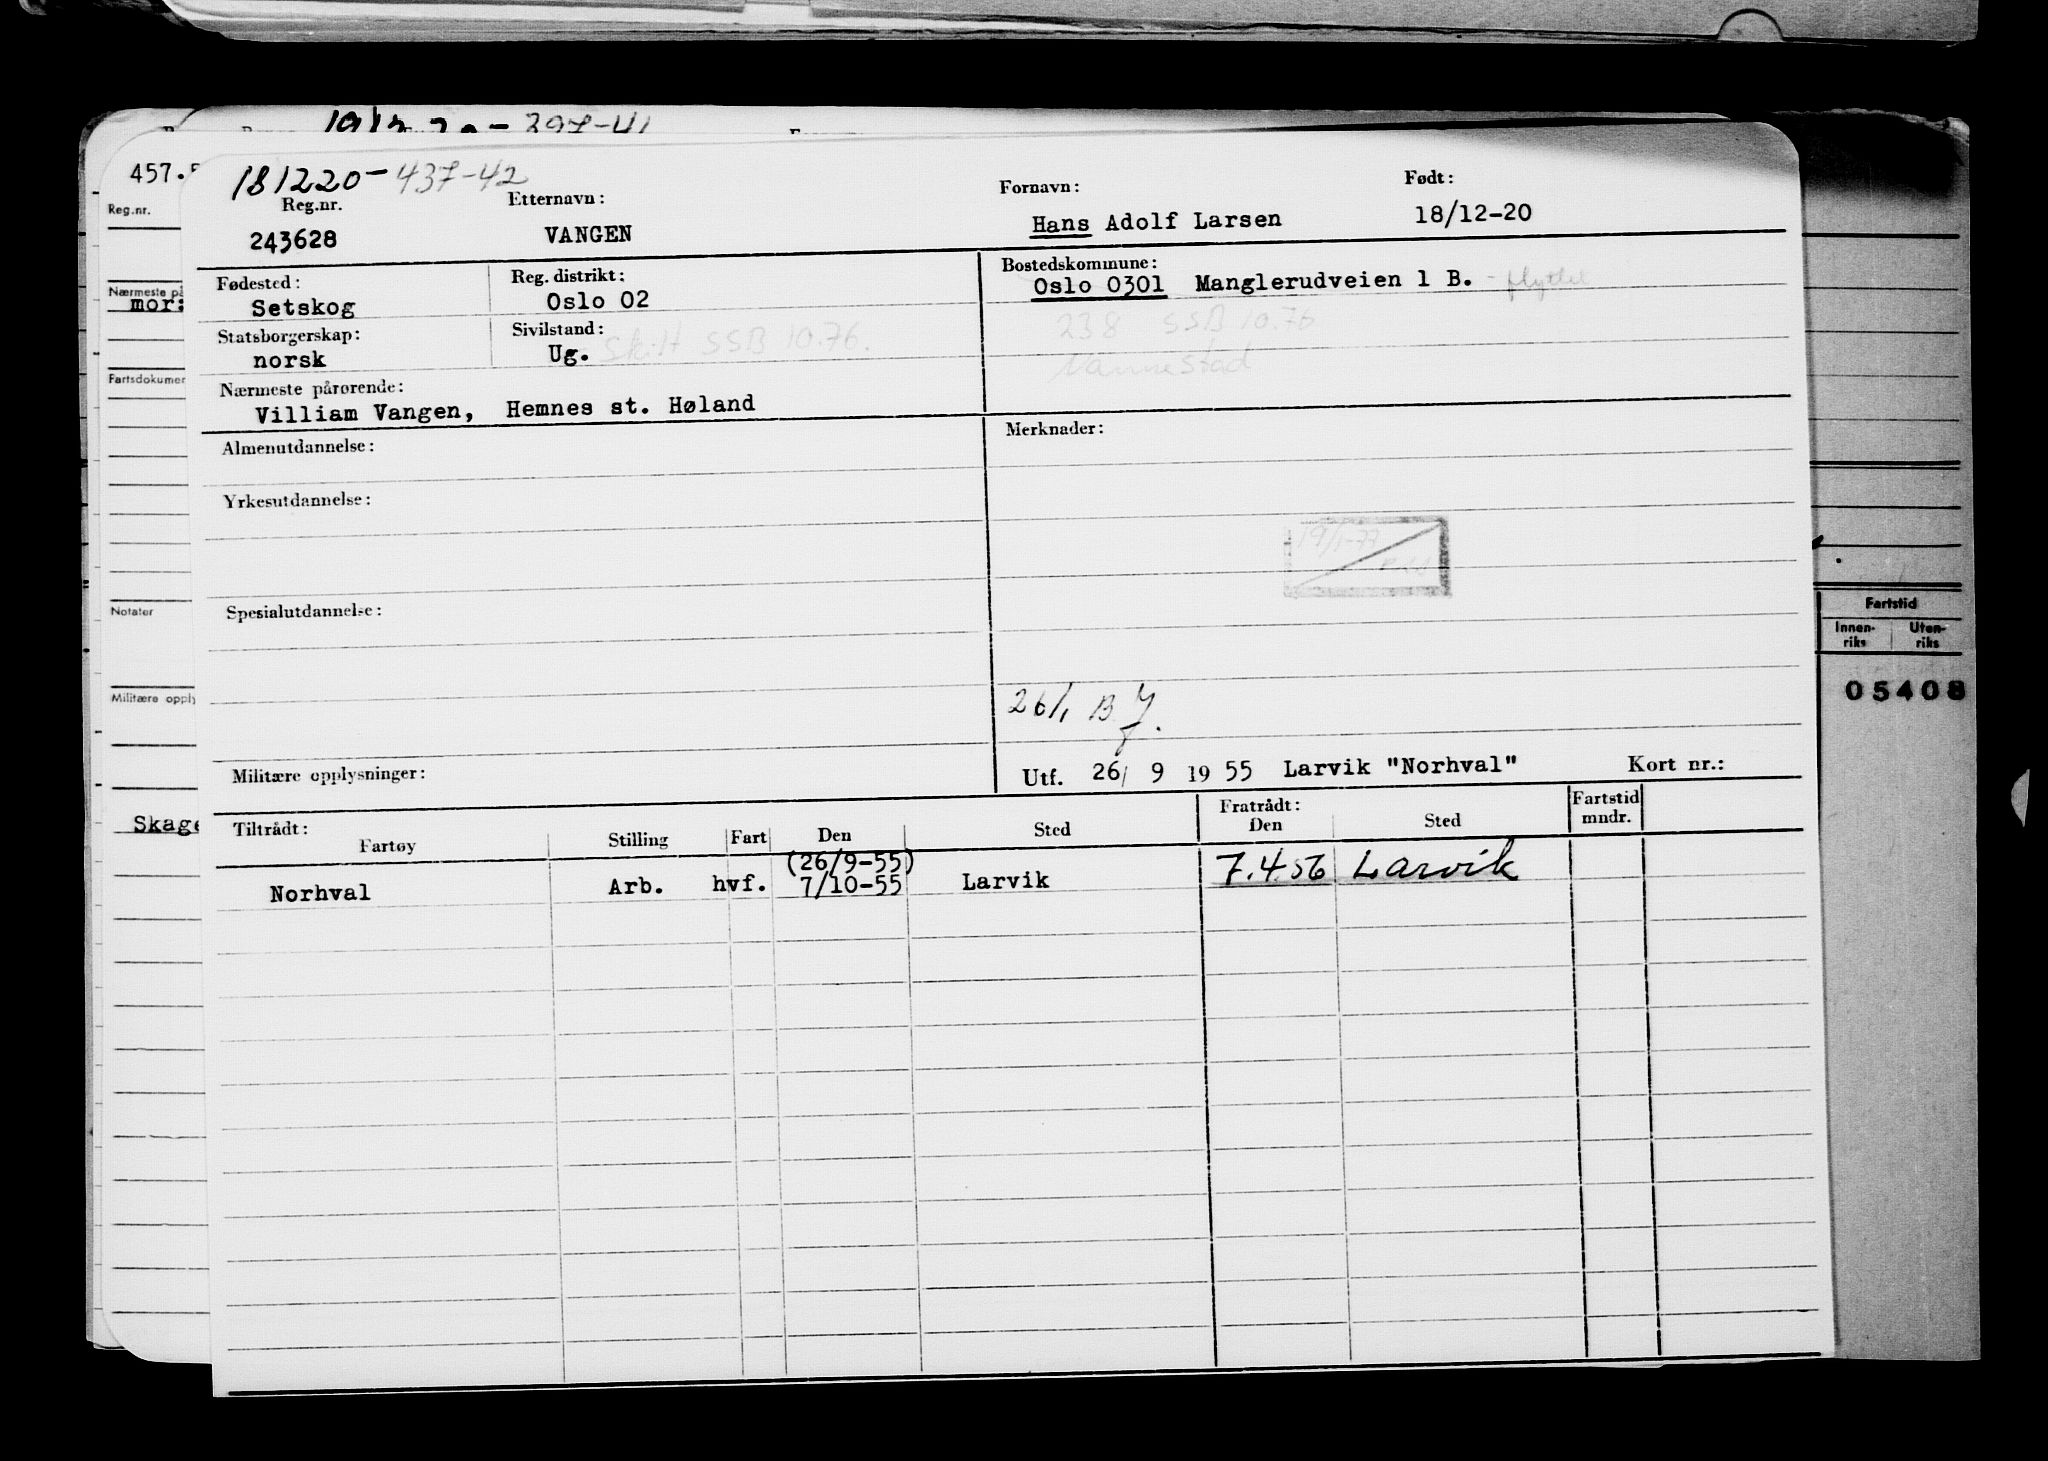 19/12 20 - 297-41
457.5
Reg.nr.
Nærmeste på
mor:
Fartsdokumen
Notater
Militære opply
Skage
181220-437-42
Reg.nr.
243628
Etternavn:
VANGEN
Fornavn:
Hans Adolf Larsen
Født:
18/12-20
Fødested:
Setskog
Reg. distrikt:
Oslo 02
Bostedskommune:
Oslo 0301 Manglerudveien 1 B. - flyttet
238 SSB 10.76
Nannestad
Statsborgerskap:
norsk
Sivilstand:
Ug. Skilt SSB 10.76.
Nærmeste pårørende:
Villiam Vangen, Hemnes st. Høland
Almenutdannelse:
Merknader:
Yrkesutdannelse:
19/1-77
Spesialutdannelse:
26/1 B J.
Militære opplysninger:
Utf. 26/ 9 19 55 Larvik "Norhval" Kort nr.:
Tiltrådt:
Fartøy Stilling Fart Den Sted
Fratrådt:
Den Sted
Fartstid
mndr.
(26/9-55)
Norhval Arb. hvf. 7/10-55 Larvik 7.4.56 Larvik
Fartstid
Innen-
riks
Uten-
riks
05408